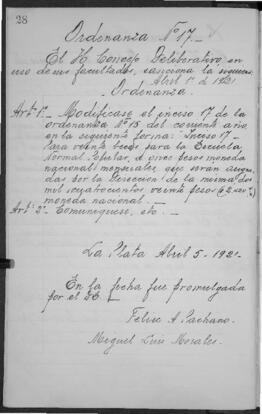 28
Ordenanza Nº 17.
El H. Concejo Deliberativo, en
uso de sus facultades, sanciona la siguiente
Abril 1º de 1921
Ordenanza.
Artº 1º — Modifícase el inciso 17 de la
ordenanza Nº 15 del corriente año,
en la siguiente forma: Inciso 17 —
Para veinte becas para la Escuela
Normal Popular, a once pesos moneda
nacional mensuales que serán
das por la Dirección de la misma, dos
mil cuatrocientos veinte pesos
moneda nacional.
Artº 2º Comuníquese, etc. —
La Plata Abril 5 - 1921
En la fecha fue promulgada
por el
A. Pachano.
Miguel Luis Morales.